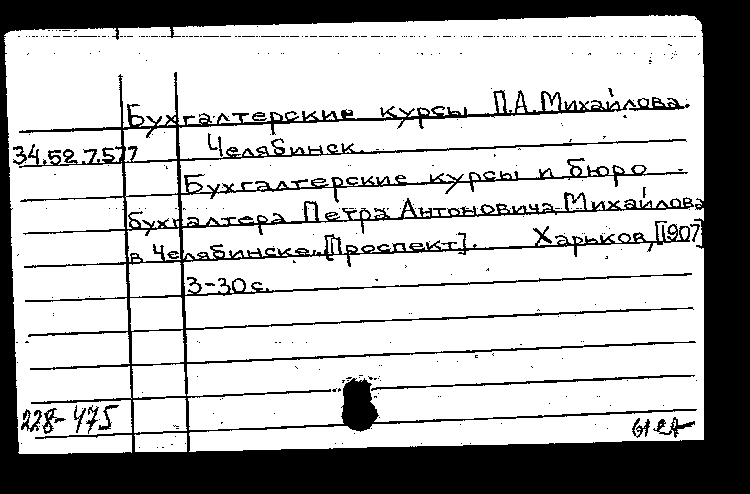 Бухгалтерские курсы П.А. Михайлова.
34.52.7.577 Челябинск.
Бухгалтерские курсы и бюро
бухгалтера Петра Антоновича Михайлова
в Челябинске. [Проспект]. Харьков, [1907]
3-30 с.
228-475